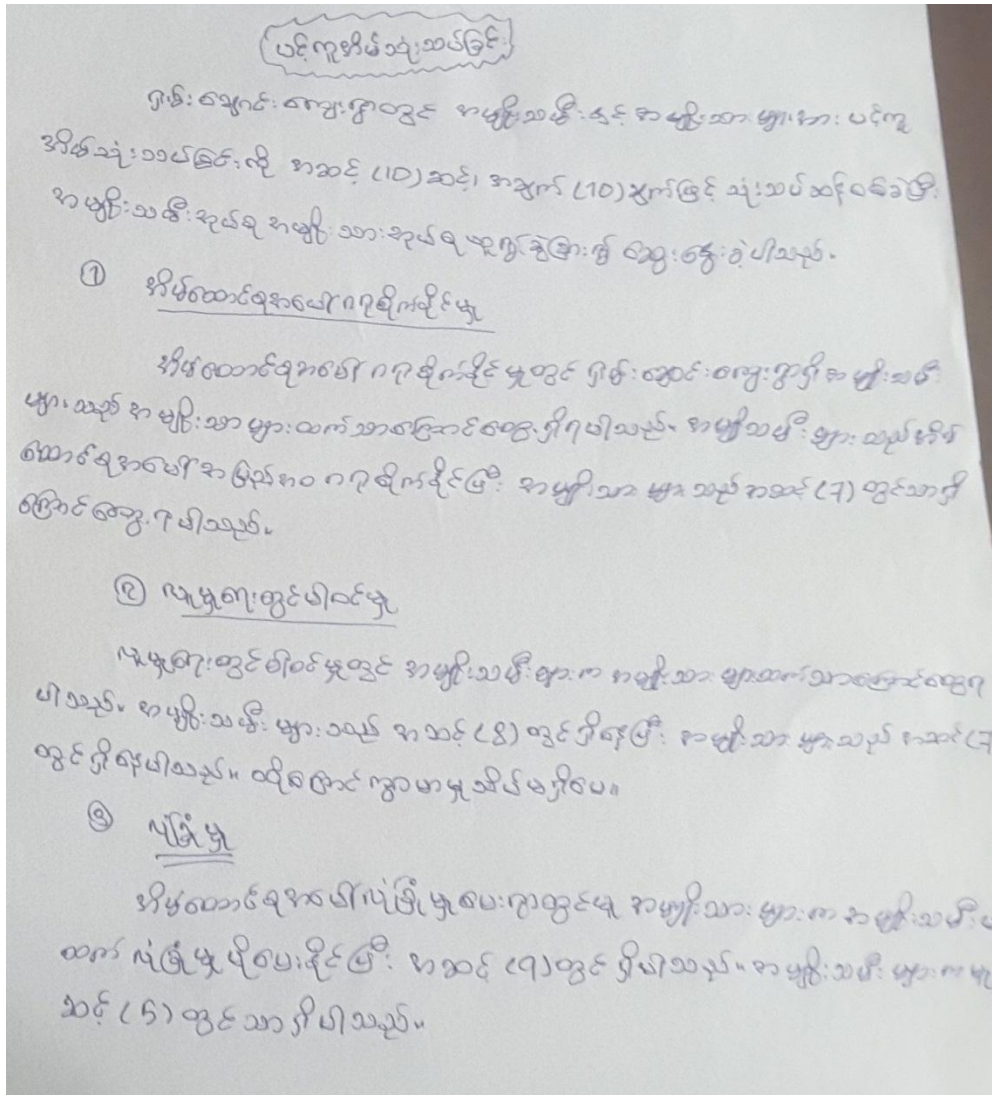 ပင့်ကူအိမ်သုံးသပ်ခြင်း
ရှမ်းချောင်းကျေးရွာတွင် အမျိုးသမီးနှင့် အမျိုးသားများအား ပင့်ကူ
အိမ်သုံးသပ်ခြင်းကို အဆင့် (10) ဆင့်၊ အချက် (10) ချက်ဖြင့် သုံးသပ်ဆန်းစစ်ခဲ့ပြီး
အမျိုးသမီးအုပ်စု အမျိုးသားအုပ်စု ယူ၍ ခွဲခြား၍ ဆွေးနွေးခဲ့ပါသည်။
① အိမ်ထောင်စုအပေါ်ဂရုစိုက်နိုင်မှု
အိမ်ထောင်စုအပေါ် ဂရုစိုက်နိုင်မှုတွင် ရှမ်းချောင်းကျေးရွာရှိ အမျိုးသမီး
များသည် အမျိုးသားများထက်သာကြောင်းတွေ့ရှိရပါသည်။ အမျိုးသမီးများသည် အိမ်
ထောင်စုအပေါ် အပြည့်အဝ ဂရုစိုက်နိုင်ပြီး အမျိုးသားများသည် အဆင့် (7) တွင်သာရှိ
ကြောင်းတွေ့ရပါသည်။
② လူမှုရေးတွင်ပါဝင်မှု
လူမှုရေးတွင်ပါဝင်မှုတွင် အမျိုးသမီးများက အမျိုးသားများထက်သာကြောင်းတွေ့ရ
ပါသည်။ အမျိုးသမီးများသည် အဆင့် (8) တွင်ရှိနေပြီး အမျိုးသားများသည် အဆင့် (7
တွင်ရှိနေပါသည်။ ထို့ကြောင့် ကွာဟမှုသိပ်မရှိပေ။
③ လုံခြုံမှု
အိမ်ထောင်စုအပေါ်လုံခြုံမှုပေးရာတွင်မူ အမျိုးသားများက အမျိုးသမီး
ထက် လုံခြုံမှုပိုပေးနိုင်ပြီး အဆင့် (9) တွင် ရှိပါသည်။ အမျိုးသမီးများကမူ
ဆင့် (5) တွင်သာရှိပါသည်။